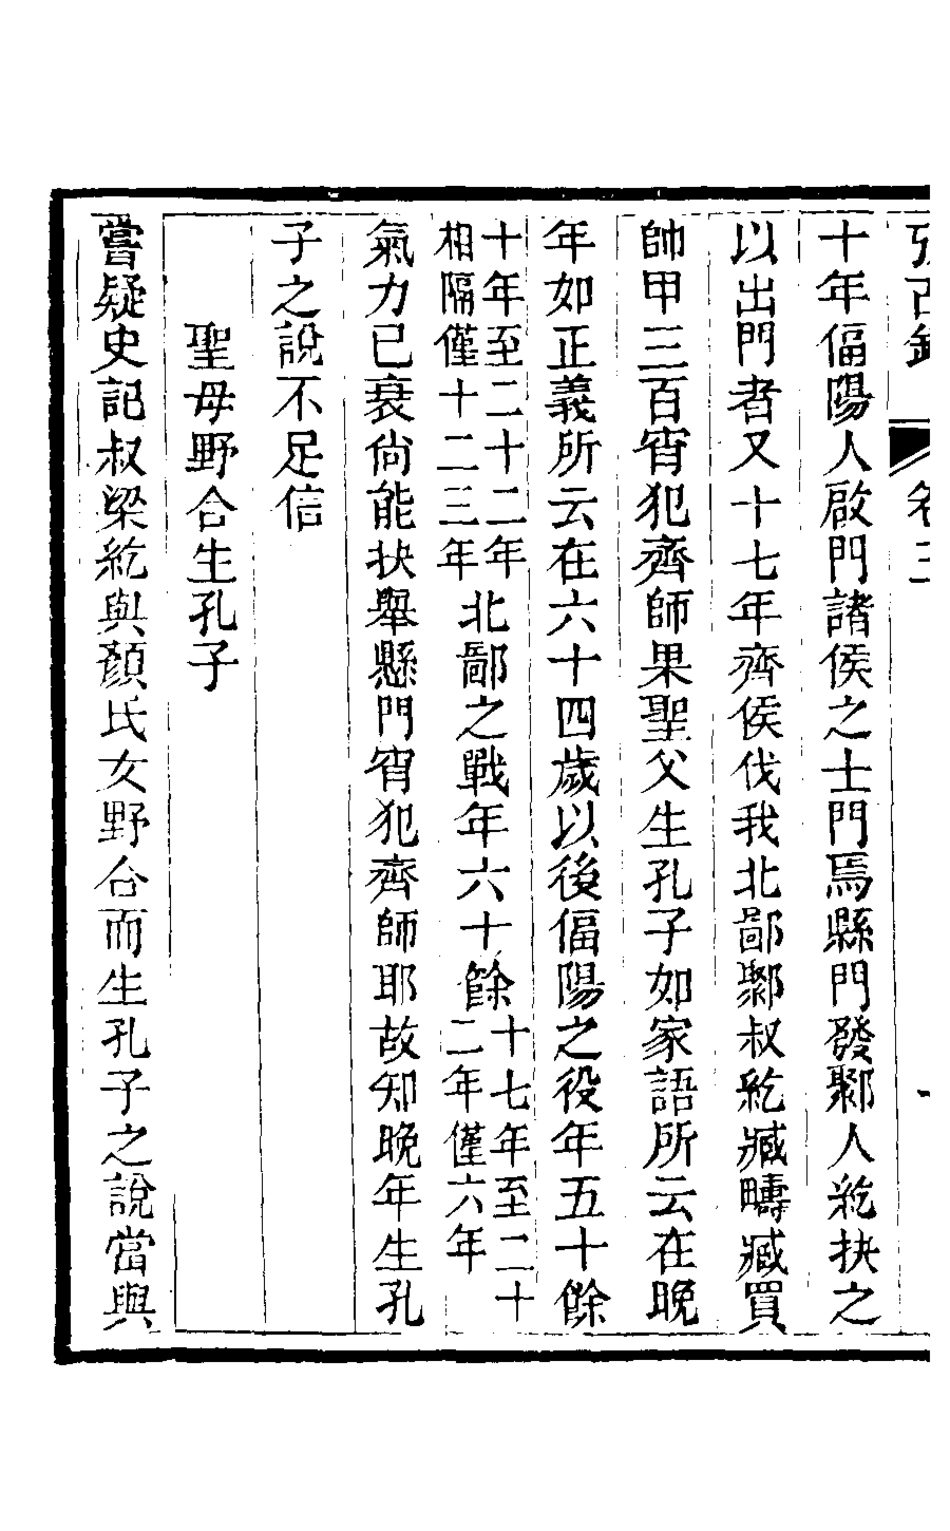 卷三
十年偪陽人啟門諸侯之士門焉縣門發郰人紇抉之
以出門者又十七年齊侯伐我北鄙郰叔紇臧疇臧買
帥甲三百宵犯齊師果聖父生孔子如家語所云在晚
年如正義所云在六十四歲以後偪陽之役年五十餘
十年至二十二年
相隔僅十二三年
北鄙之戰年六十餘
十七年至二十
二年僅六年
氣力已衰尙能抉舉懸門宵犯齊師耶故知晚年生孔
子之說不足信
聖母野合生孔子
嘗疑史記叔梁紇與顏氏女野合而生孔子之說當與